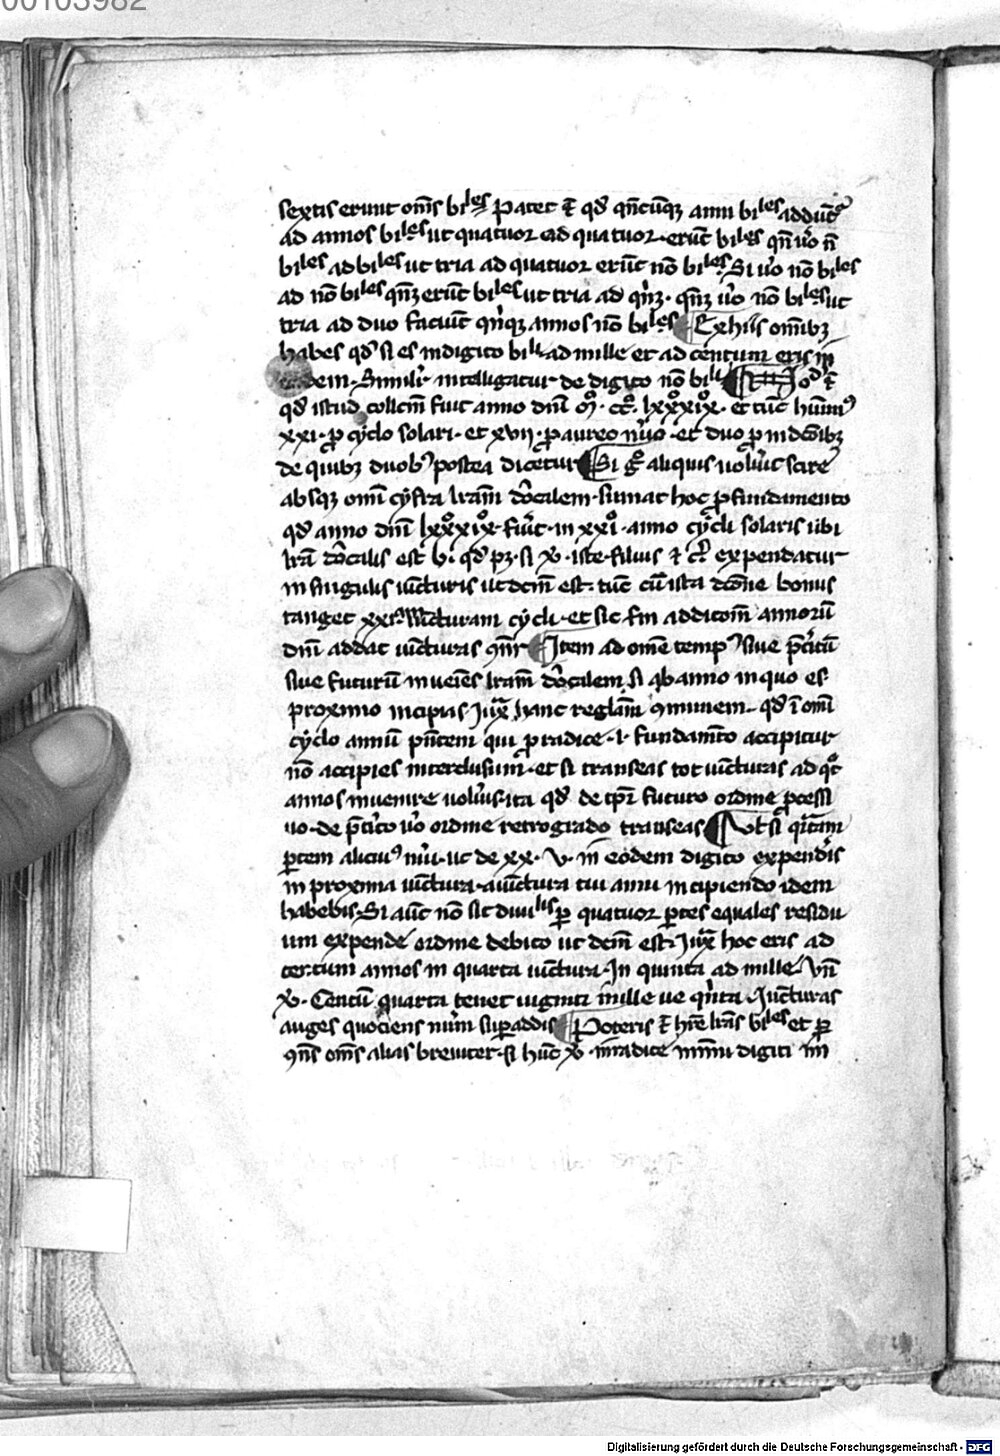 00103982
sextis erunt om̄s biles Patet ē qđ qn̄cūqꝫ anni biles addūt᷑
ad annos biles ut quatuor ad quatuor · erūt biles qn̄ u̓o n̄
biles ad biles ut tria ad quatuor erūt nō biles Si u̓o nō biles
ad nō biles qn̄qꝫ erūt biles ut tria ad qn̓qꝫ · qn̄qꝫ u̓o nō biles ut
tria ad duo faciūt qn̓qꝫ annos nō biles Ex hiis om̄ibꝫ
habes qđ si es in digito bili ad mille et ad centum eris in
eodem · Simil̓r intelligatur de digito nō bili
qđ istud collcm̄ fuit anno dn̄i mͦ · ccͦ · lxxxͦixͦ · et tūc hūim᷒
xxi · ꝓ cyclo solari · et xvii · ꝓ aureo nu̓o · et duo ꝓ indcōibꝫ
de quibꝫ duob᷒ postea dicetur Si gͦ aliquis uolu̓it scire
absqꝫ om̄i cyfra lr̄am dn̓icalem · sumat hoc ꝓ fundamento
qđ anno dn̄i lxxxͦixͦ fu̓it · in xxiͦ · anno cycli solaris ubi
lr̄a dn̓icalis est b · qđ pꝫ · si ꝟ · iste · filius ⁊ c̓ · expendatur
in singulis iūcturis ut dcm̄ est · tūc cū ista dcōne bonus
tanget xxiͣ iūcturam cycli · et sic scd̄m addicōm̄ annorū
dn̄i addat iūcturas ꝯn̄r Item ad om̄e temp᷒ siue p̄t̓itū
siue futurū inueīes lr̄am dn̓icalem si ab anno in quo es
proximo incipias iuxͣ hanc reglām ꝯmunem · qđ ī om̄i
cyclo annū pn̄tem qui ꝓ radice · i · fundam̄to accipitur
nō accipies interclusum · et si transeas tot iūcturas ad qͦt
annos inuenire uolu̓is · ita qđ de tp̄r futuro ordine ꝓcessi
uo · de p̄t̓ito u̓o ordine retrogrado transeas Vl̓ si qͣrtam
ꝑtem alicui᷒ nu̓i · ut de xx · v · in eodem digito expend̓is
in proxima iūctura · a iūctura tui anni incipiendo idem
habebis · Si aūt nō sit diuilis ꝑ quatuor ꝑtes equales residu
um expende ordine debito ut dcm̄ est · Juxͣ hoc eris ad
centum annos in quarta iūctura · In quinta ad mille Vn̄
ꝟ · Centū quarta tenet uiginti mille ue qn̓ta Juncturas
auges quociens num̄ suꝑaddis Poteris ē hr̄e lr̄as biles et ꝑ
ꝯn̄s om̄s alias breuiter · si hūc ꝟ · in radice minimi digiti in
Digitalisierung gefördert durch die Deutsche Forschungsgemeinschaft - DFG